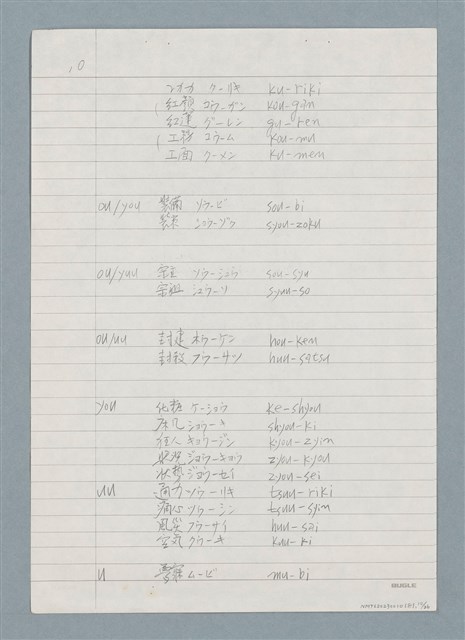 10
功力 クーリキ ku-riki
紅顔 コウーガン kou-gan
紅蓮 グーレン gu-ren
工務 コウーム kou-mu
工面 クーメン ku-men
ou/you 装備 ソウービ sou-bi
装束 ショウーゾク syou-zoku
ou/yuu 宗主 ソウーシュ sou-syu
宗祖 シュウーソ syuu-so
ou/uu 封建 ホウーケン hou-ken
封殺 フウーサツ huu-satsu
you 化粧 ケーショウ ke-shyou
床几 ショウーキ shyou-ki
狂人 キョウージン kyou-zyin
状況 ジョウーキョウ zyou-kyou
状勢 ジョウーセイ zyou-sei
uu 通力 ツウーリキ tsuu-riki
痛心 ツウーシン tsuu-syin
風災 フウーサイ huu-sai
空気 クウーキ kuu-ki
u ムービ mu-bi
BUGLE